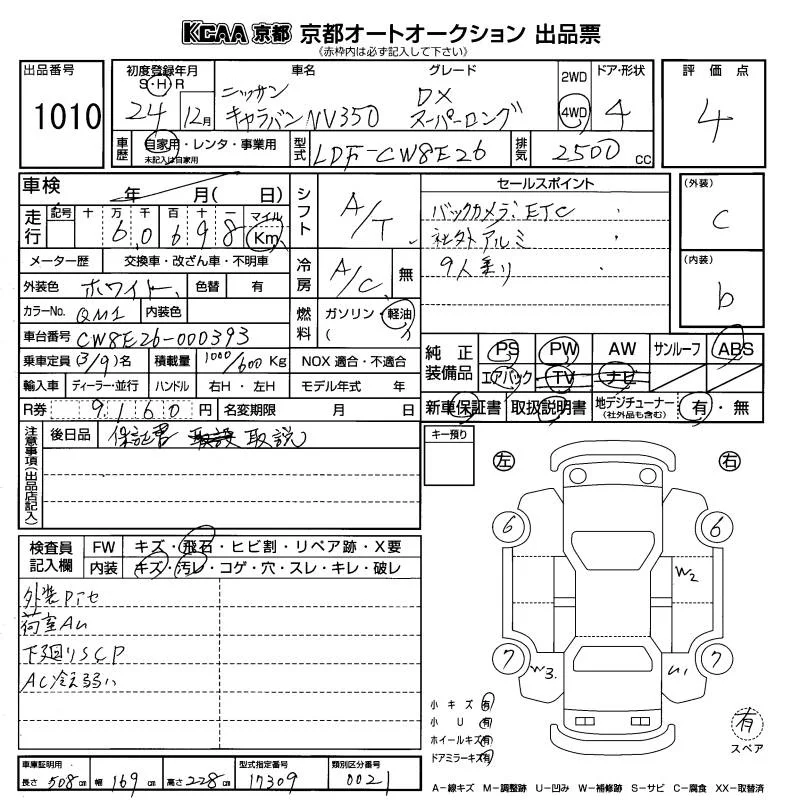 KCAA 京都 京都オートオークション 出品票
(赤枠内は必ず記入して下さい)
出品番号
1010
初度登録年月
S・H・R
24年 12月
車名
ニッサン
キャラバンNV350
グレード
DX
スーパーロング
2WD
4WD
ドア・形状
4
評価点
4
車歴
自家用・レンタ・事業用
未記入は自家用
型式
LDF-CW8E26
排気
2500 CC
車検
年 月( 日)
走行
記号 十 万 千 百 十 一 マイル
6 0 6 9 8 Km
メーター歴 交換車・改ざん車・不明車
外装色 ホワイト 色替 有
カラーNo. QM1 内装色
車台番号 CW8E26-000393
乗車定員 (3/9)名 積載量 1000/600 Kg
NOX 適合・不適合
輸入車 ディーラー・並行 ハンドル 右H・左H
モデル年式 年
R券 9160円 名変期限 月 日
シフト
A/T
冷房
A/C 無
燃料
ガソリン・軽油
( )
セールスポイント
バックカメラ ETC
社外アルミ
9人乗り
(外装)
C
(内装)
b
純正装備品
PS PW AW サンルーフ ABS
エアバック TV ナビ
新車保証書 取扱説明書 地デジチューナー (社外品も含む) 有・無
注意事項(出品店記入)
後日品 保証書 取説
キー預り
左
右
6
6
7
7
W2
W3
U1
検査員記入欄
FW キズ・飛石・ヒビ割・リペア跡・X要
内装 キズ・汚レ・コゲ・穴・スレ・キレ・破レ
外装Pアセ
荷室AU
下廻りSCP
AC冷え弱い
小キズ 有
小U 有
ホイールキズ 有
ドアミラーキズ 有
有
スペア
車庫証明用
長さ 508cm 幅 169cm 高さ 228cm
型式指定番号
17309
類別区分番号
0021
A−線キズ M−調整跡 U−凹み W−補修跡 S−サビ C−腐食 XX−取替済